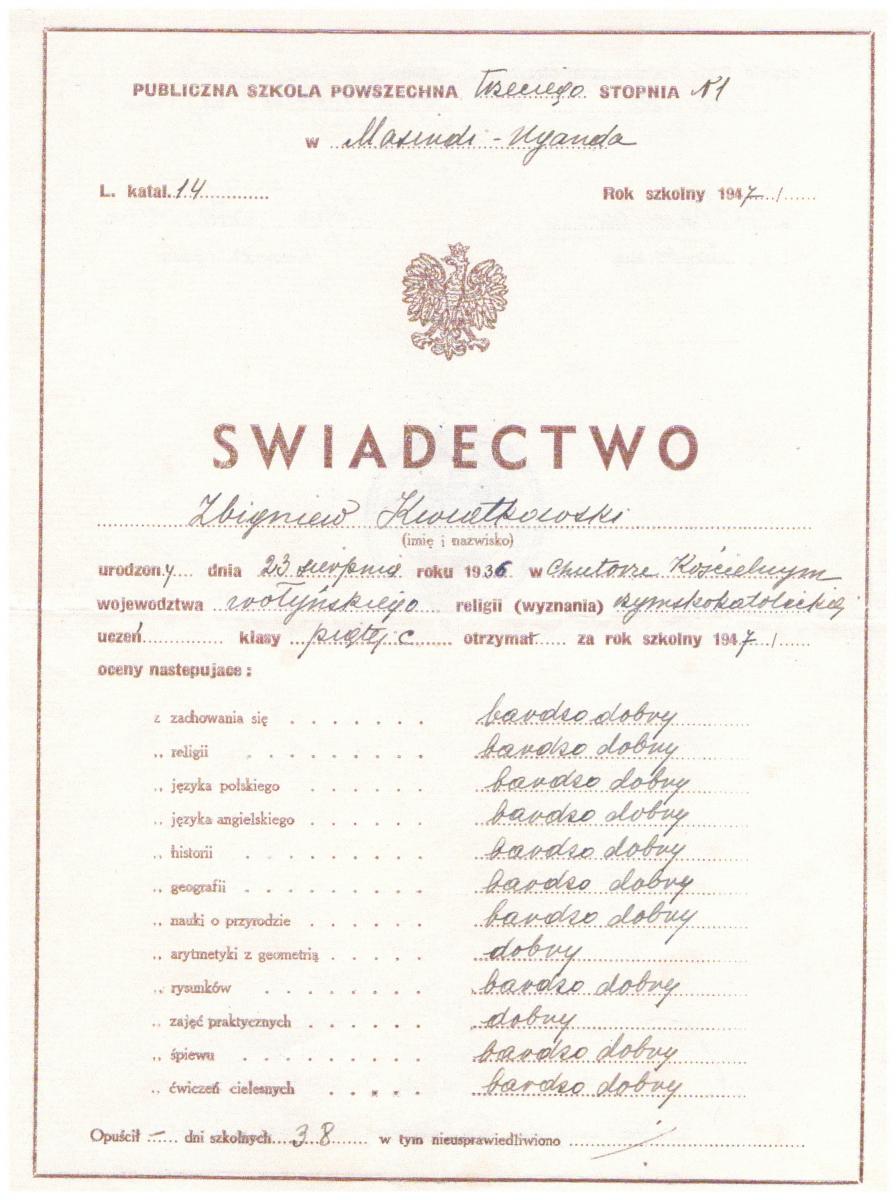 PUBLICZNA SZKOLA POWSZECHNA trzeciego STOPNIA N1
w Masindi - Uganda
L. katal. 14 Rok szkolny 1947 /
SWIADECTWO
Zbigniew Kwiatkowski
(imię i nazwisko)
urodzony dnia 23 sierpnia roku 1936 w Chutorze Kościelnym
województwa wołyńskiego religii (wyznania) rzymskokatolickiej
uczeń klasy piątej c otrzymał za rok szkolny 1947 /
oceny nastepujace :
z zachowania się bardzo dobry
„ religii bardzo dobry
„ języka polskiego bardzo dobry
„ języka angielskiego bardzo dobry
„ historii bardzo dobry
„ geografii bardzo dobry
„ nauki o przyrodzie bardzo dobry
„ arytmetyki z geometrią dobry
„ rysunków bardzo dobry
„ zajęć praktycznych dobry
„ śpiewu bardzo dobry
„ ćwiczeń cielesnych bardzo dobry
Opuścił — dni szkolnych 38 w tym nieusprawiedliwiono /